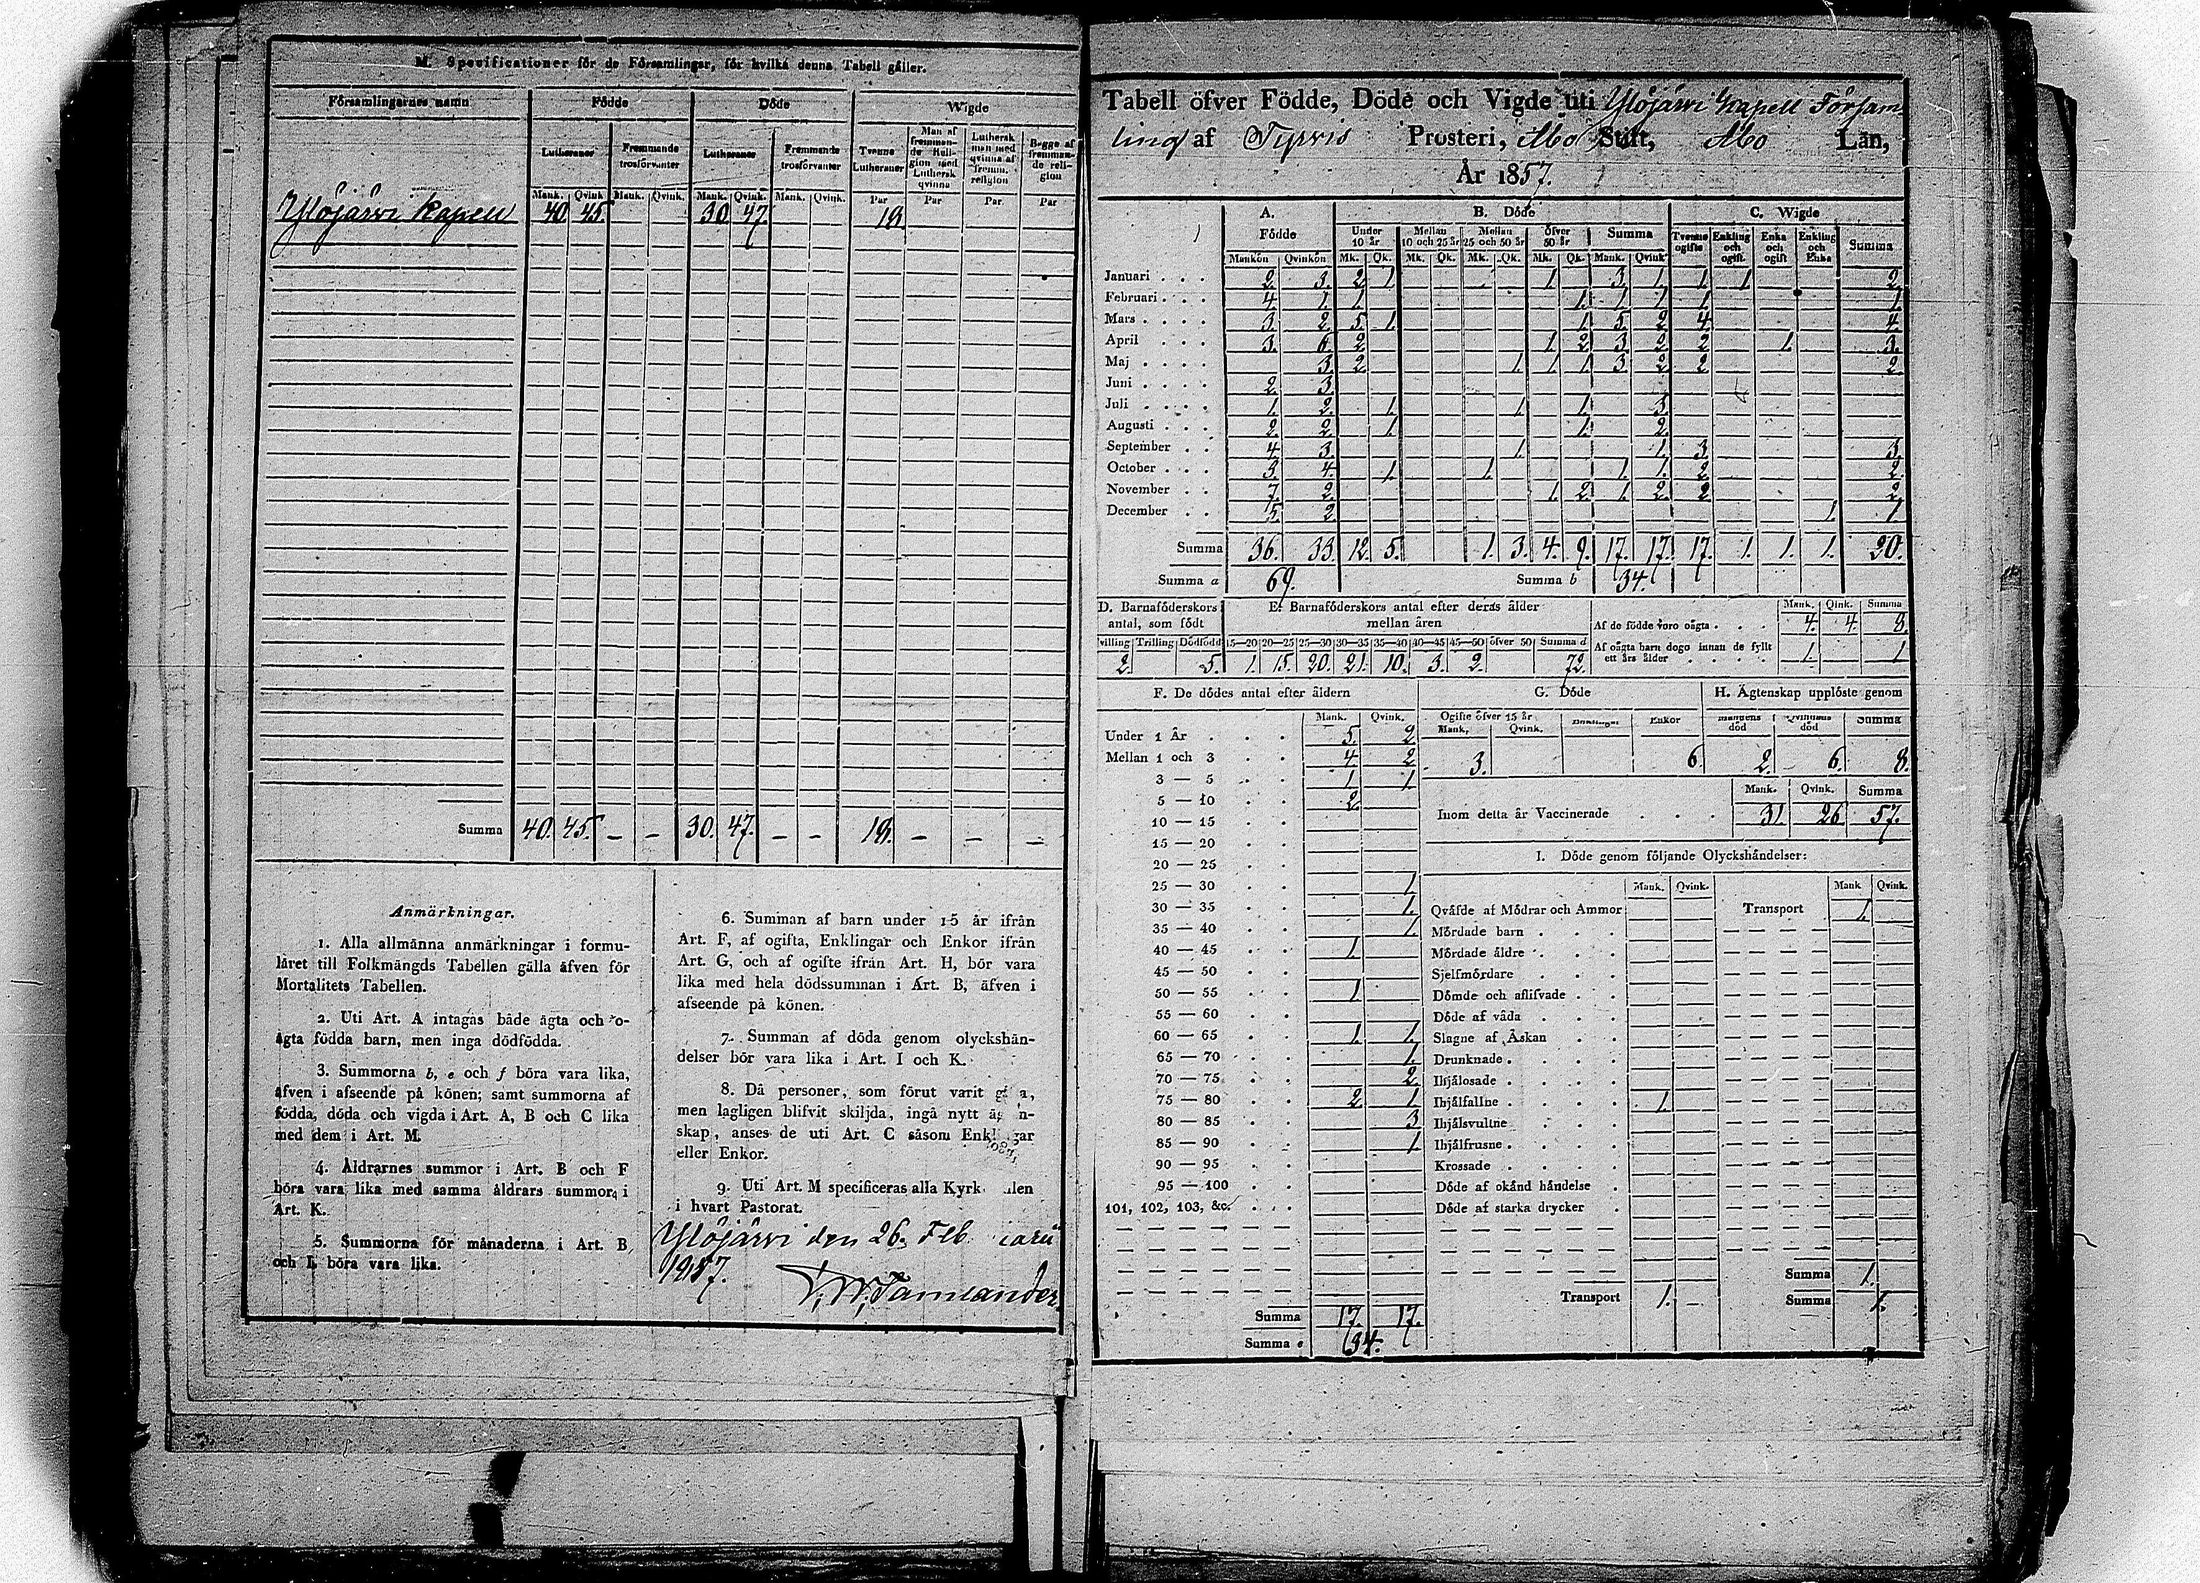 M. Specificationer för de Församlingar, för hvilka denna Tabell gäller.
Församlingarnes namn Födde Döde Wigde
Lutheraner Fremmande trosförvanter Lutheraner Fremmande trosförvanter Tvenne Lutheraner Man af fremmande Religion med Luthersk qvinna Luthersk man med qvinna af fremm. religion Begge af fremmande religion
Mank. Qvink. Mank. Qvink. Mank. Qvink. Mank. Qvink. Par Par Par Par
Ylöjärvi Kapell 40 45. 30 47 18.
Summa 40. 45. — — 30. 47. — — 18. — — —
Anmärkningar.
1. Alla allmänna anmärkningar i formu-
läret till Folkmängds Tabellen gälla äfven för
Mortalitets Tabellen.
2. Uti Art. A intagas både ägta och o-
ägta födda barn, men inga dödfödda.
3. Summorna b, e och f böra vara lika,
äfven i afseende på könen; samt summorna af
födda, döda och vigda i Art. A, B och C lika
med dem i Art. M.
4. Åldrarnes summor i Art. B och F
böra vara lika med samma åldrars summor i
Art. K.
5. Summorna för månaderna i Art. B
och L böra vara lika.
6. Summan af barn under 15 år ifrån
Art. F, af ogifta, Enklingar och Enkor ifrån
Art. G, och af ogifte ifrån Art. H, bör vara
lika med hela dödssumman i Art. B, äfven i
afseende på könen.
7. Summan af döda genom olyckshän-
delser bör vara lika i Art. I och K.
8. Då personer, som förut varit
men lagligen blifvit skiljda, ingå nytt
skap, anses de uti Art. C såsom
eller Enkor.
9. Uti Art. M specificeras alla
i hvart Pastorat.
Ylöjärvi den 26. Feb
Tabell öfver Födde, Döde och Vigde uti Ylöjärvi Kapell Försam
ling af Tyrvis Prosteri, Åbo Stift, Åbo Län,
År 1857.
A. B. Döde C. Wigde
Födde Under 10 år Mellan 10 och 25 år Mellan 25 och 50 år Öfver 50 år Summa Tvenne ogifte Enkling och ogift Enka och ogift Enkling och Enka Summa
Mankön Qvinkön Mk. Qk. Mk. Qk. Mk. Qk. Mk. Qk. Mank. Qvink
Januari 2. 3. 2 1 1 3 1. 1 1 2.
Februari 4 1 1 1. 1 1 1 1
Mars 3. 2. 5. 1. 1 5. 2 4 4.
April 3. 6 2 1 2 3 2 2 1. 3.
Maj 3 2 1 1 1 3 2 2 2
Juni 2. 3.
Juli 1 2. 1. 1 1. 3
Augusti 2. 2 1. 1. 2.
September 4 3. 1. 1. 3. 3.
October 3 4. 1. 1. 1. 1. 2 2.
November 7. 2. 1. 2 1. 2. 2 2
December 5. 2 1. 1.
Summa 36. 33. 12. 5. 1. 3. 4. 9. 17. 17. 17. 1. 1. 1. 20.
Summa a 69. Summa b 34.
D. Barnaföderskors antal, som födt E. Barnaföderskors antal efter deras ålder mellan åren Mank. Qink. Summa
Af de födde voro oägta 4. 4 8.
villing Trilling Dödfödd 15—20 20—25 25—30 30—35 35—40 40—45 45—50 öfver 50 Summa d
Af oägta barn dogo innan de fyllt ett års ålder 1. 1
2. 5. 1. 15. 20. 21. 10. 3. 2. 72.
F. De dödes antal efter åldern G. Döde H. Ägtenskap upplöste genom
Mank. Qvink. Ogifte öfver 15 år Mank. Qvink. Enkor Mannens död Qvinnans död Summa
Under 1 År 5. 2
Mellan 1 och 3 4 2
3. 6 2. 6. 8.
3 — 5 1 1.
5 — 10 2.
10 — 15
15 — 20
20 — 25
25 — 30 1.
30 — 35 1.
35 — 40 1
40 — 45 1
45 — 50
50 — 55 1
55 — 60
60 — 65 1 1.
65 — 70 1.
70 — 75 2
75 — 80 2 1
80 — 85 3
85 — 90 1
90 — 95
95 — 100
101, 102, 103, &c.
Summa 17. 17.
Summa e 34.
Mank. Qvink. Summa
Inom detta år Vaccinerade 31. 26 57.
I. Döde genom följande Olyckshändelser:
Mank. Qvink. Mank Qvink.
Qväfde af Mödrar och Ammor Transport 1.
Mördade barn
Mördade äldre
Sjelfmördare
Dömde och aflifvade
Döde af våda
Slagne af Åskan
Drunknade
Ihjälosade
Ihjälfallne 1.
Ihjälsvultne
Ihjälfrusne
Krossade
Döde af okänd händelse
Döde af starka drycker
Summa 1.
Transport 1. — Summa 1.